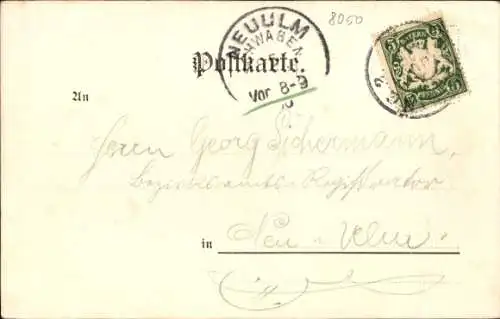 8050
NEUULM
SCHWABEN
Vor 8-9
Postkarte.
BAYERN
An
Herrn Georg Sichermann,
Bezirksamts-Registrator
in Neu-Ulm.